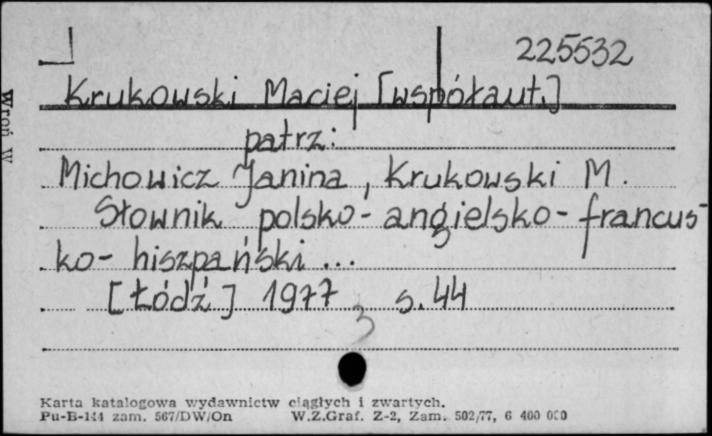 225532
Krukowski Maciej [współaut.]
patrz:
Michowicz Janina, Krukowski M.
Słownik polsko-angielsko-francus-
ko-hiszpański ...
[Łódź] 1977 s. 44
3
Karta katalogowa wydawnictw ciągłych i zwartych.
Pu-B-144 zam. 567/DW/On W.Z.Graf. Z-2, Zam. 502/77, 6 400 000